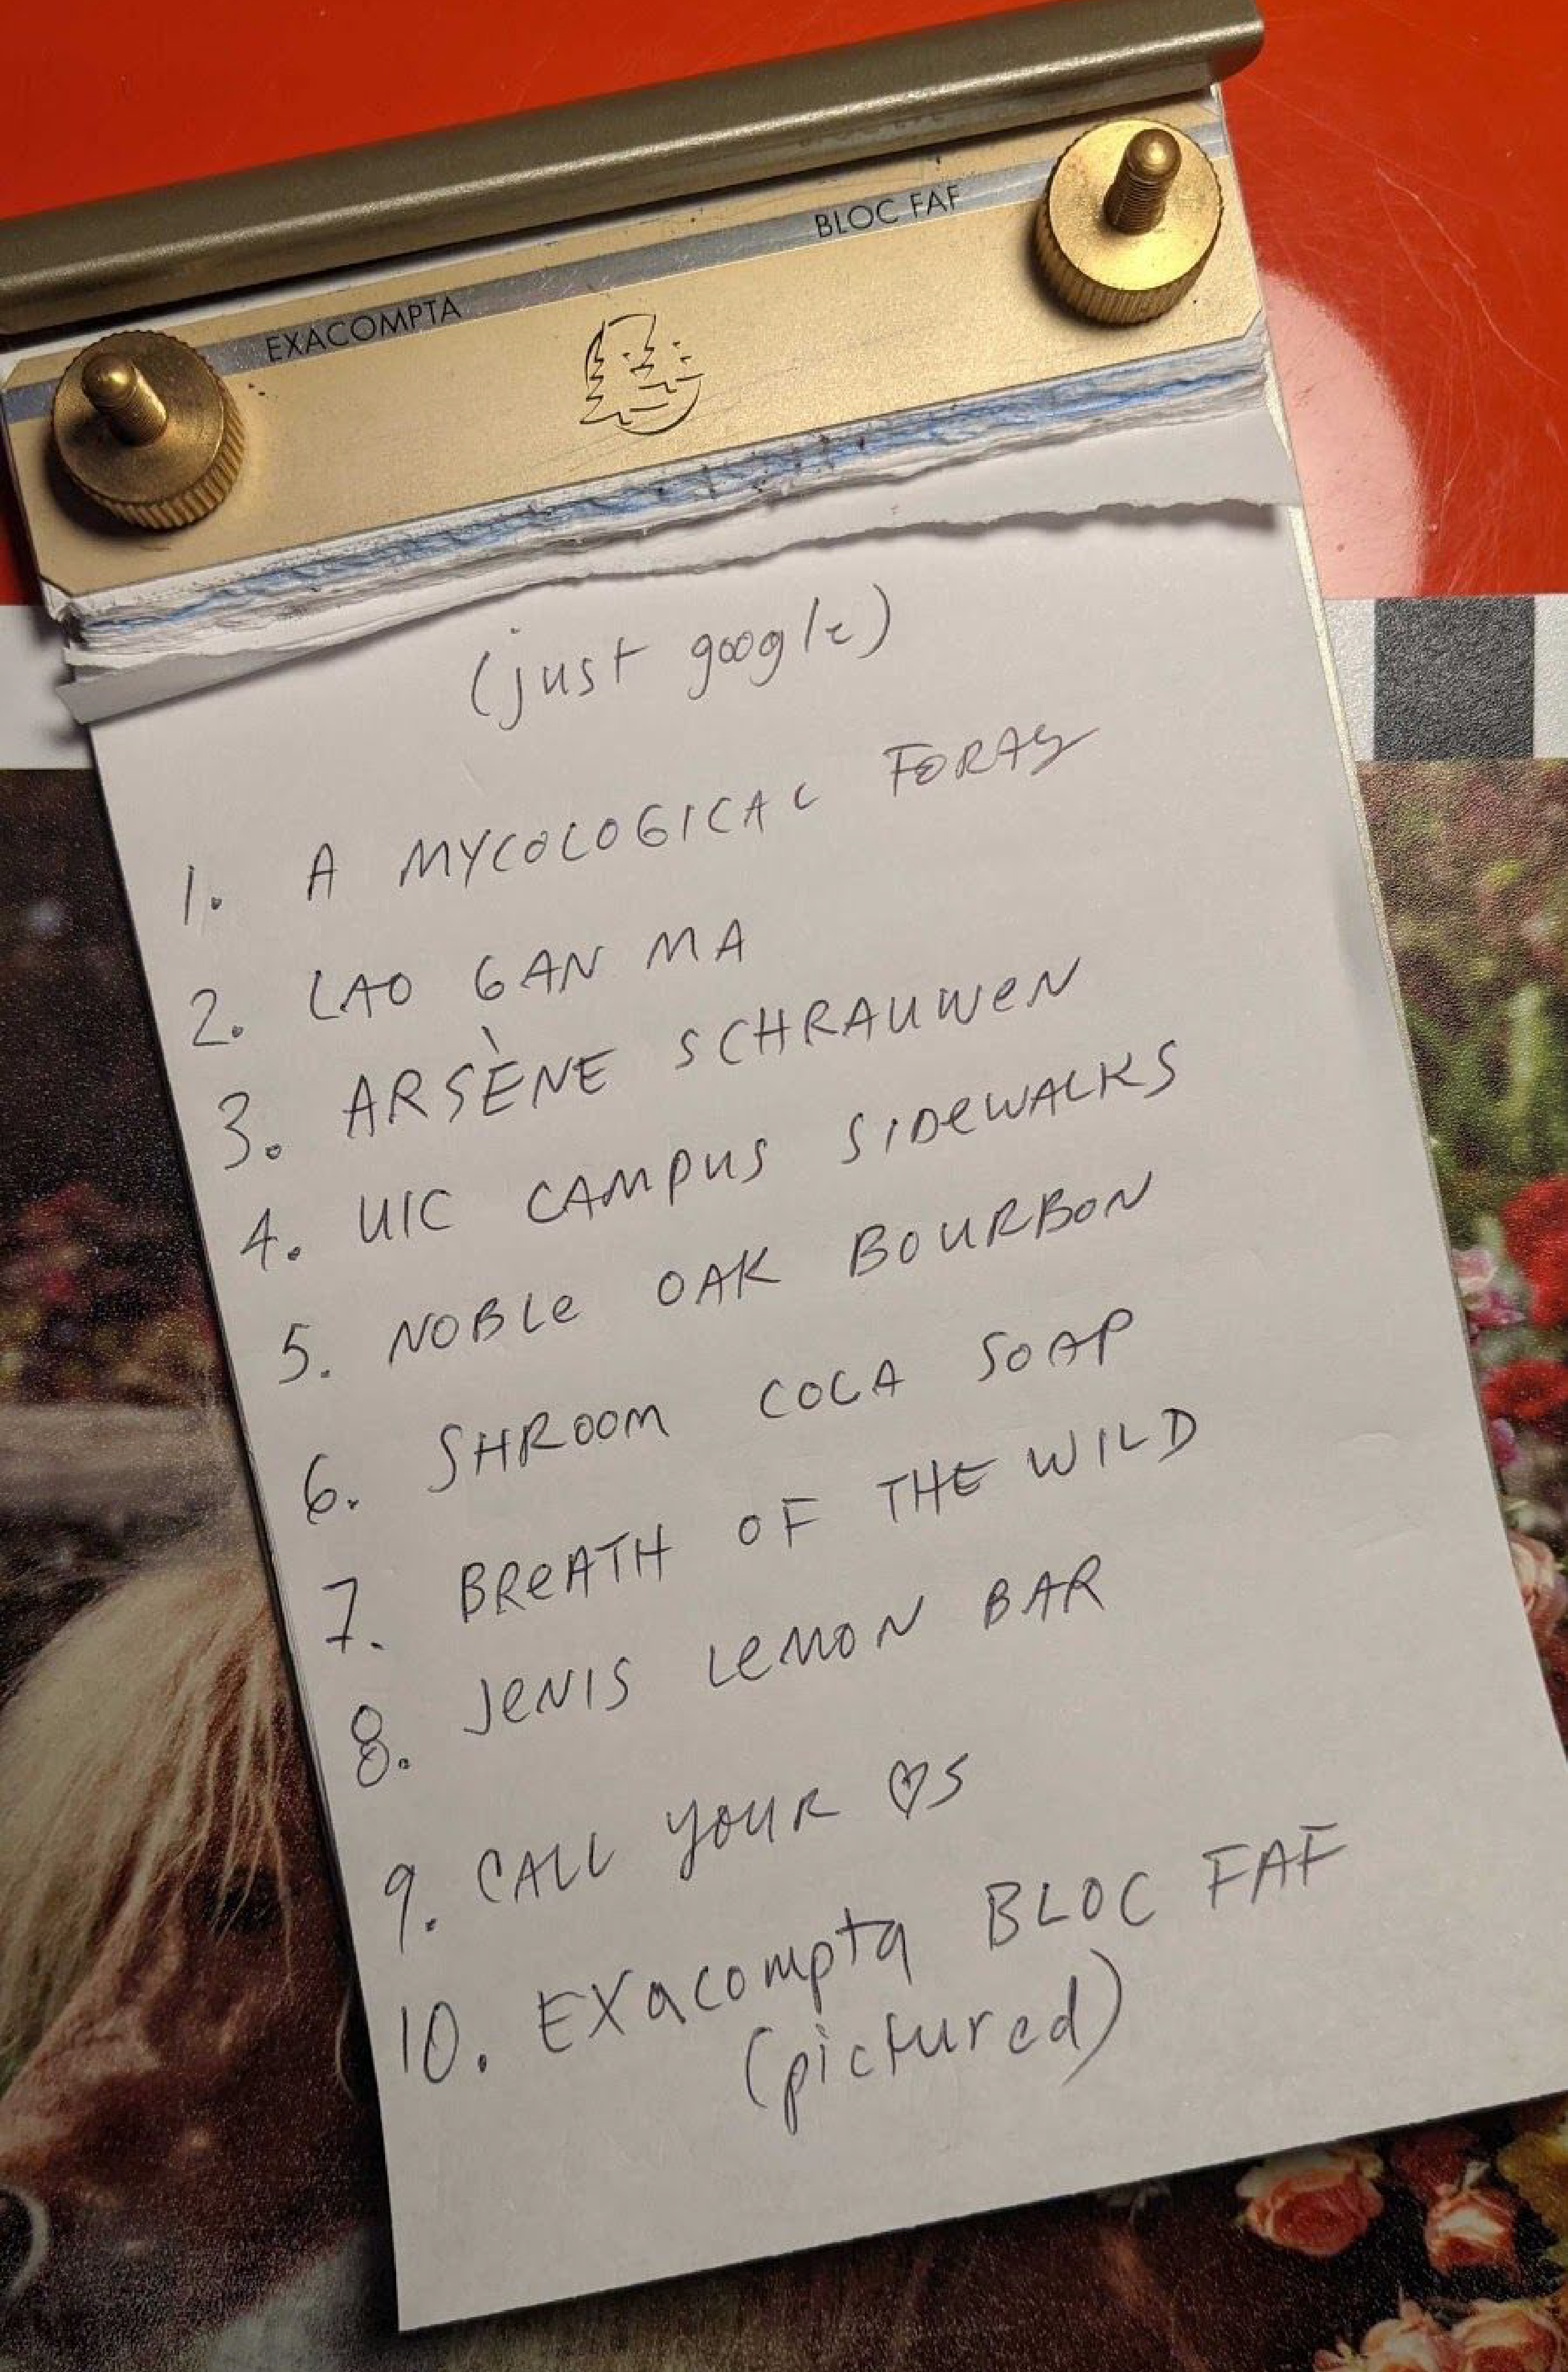 EXACOMPTA BLOC FAF
(just google)
1. A MYCOLOGICAL FORAY
2. LAO GAN MA
3. ARSÈNE SCHRAUWEN
4. UIC CAMPUS SIDEWALKS
5. NOBLE OAK BOURBON
6. SHROOM COCA SOAP
7. BREATH OF THE WILD
8. JENIS LEMON BAR
9. CALL YOUR ♡S
10. EXacompta BLOC FAF
(pictured)